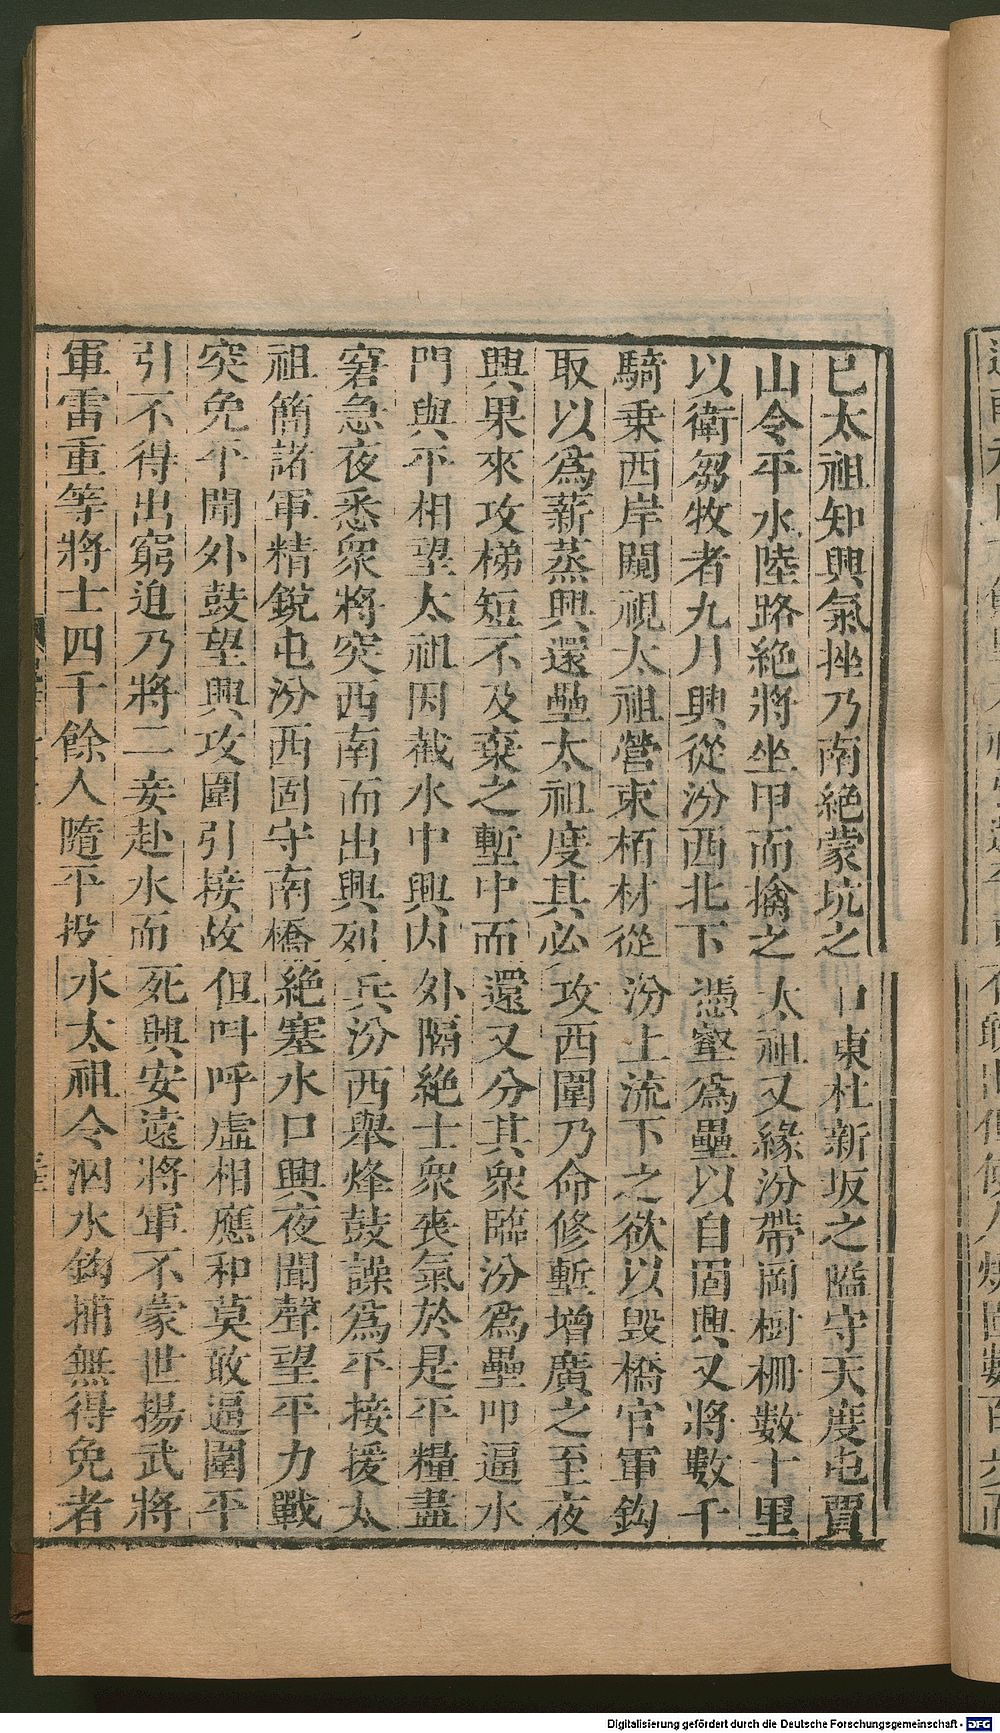 已太祖知興氣挫乃南絕蒙坑之口東杜新坂之隘守天度屯賈
山令平水陸路絕將坐甲而擒之太祖又緣汾帶岡樹柵數十里
以衛芻牧者九月興從汾西北下憑壑為壘以自固興又將數千
騎乗西岸闚視太祖營束栢材從汾上流下之欲以毁橋官軍鈎
取以爲薪蒸興還壘太祖度其必攻西圍乃命修塹增廣之至夜
興果來攻梯短不及棄之塹中而還又分其衆臨汾爲壘叩逼水
門與平相望太祖因截水中興内外隔絶士衆喪氣於是平糧盡
窘急夜悉衆將突西南而出興列兵汾西舉烽鼓譟爲平接援太
祖簡諸軍精銳屯汾西固守南橋絶塞水口興夜聞聲望平力戰
突免平聞外鼓望興攻圍引接故但呌呼虛相應和莫敢逼圍平
引不得出窮迫乃將二妾赴水而死興安遠將軍不蒙世揚武將
軍雷重等將士四千餘人隨平投水太祖令泅水鈎捕無得免者
Digitalisierung gefördert durch die Deutsche Forschungsgemeinschaft - DFG